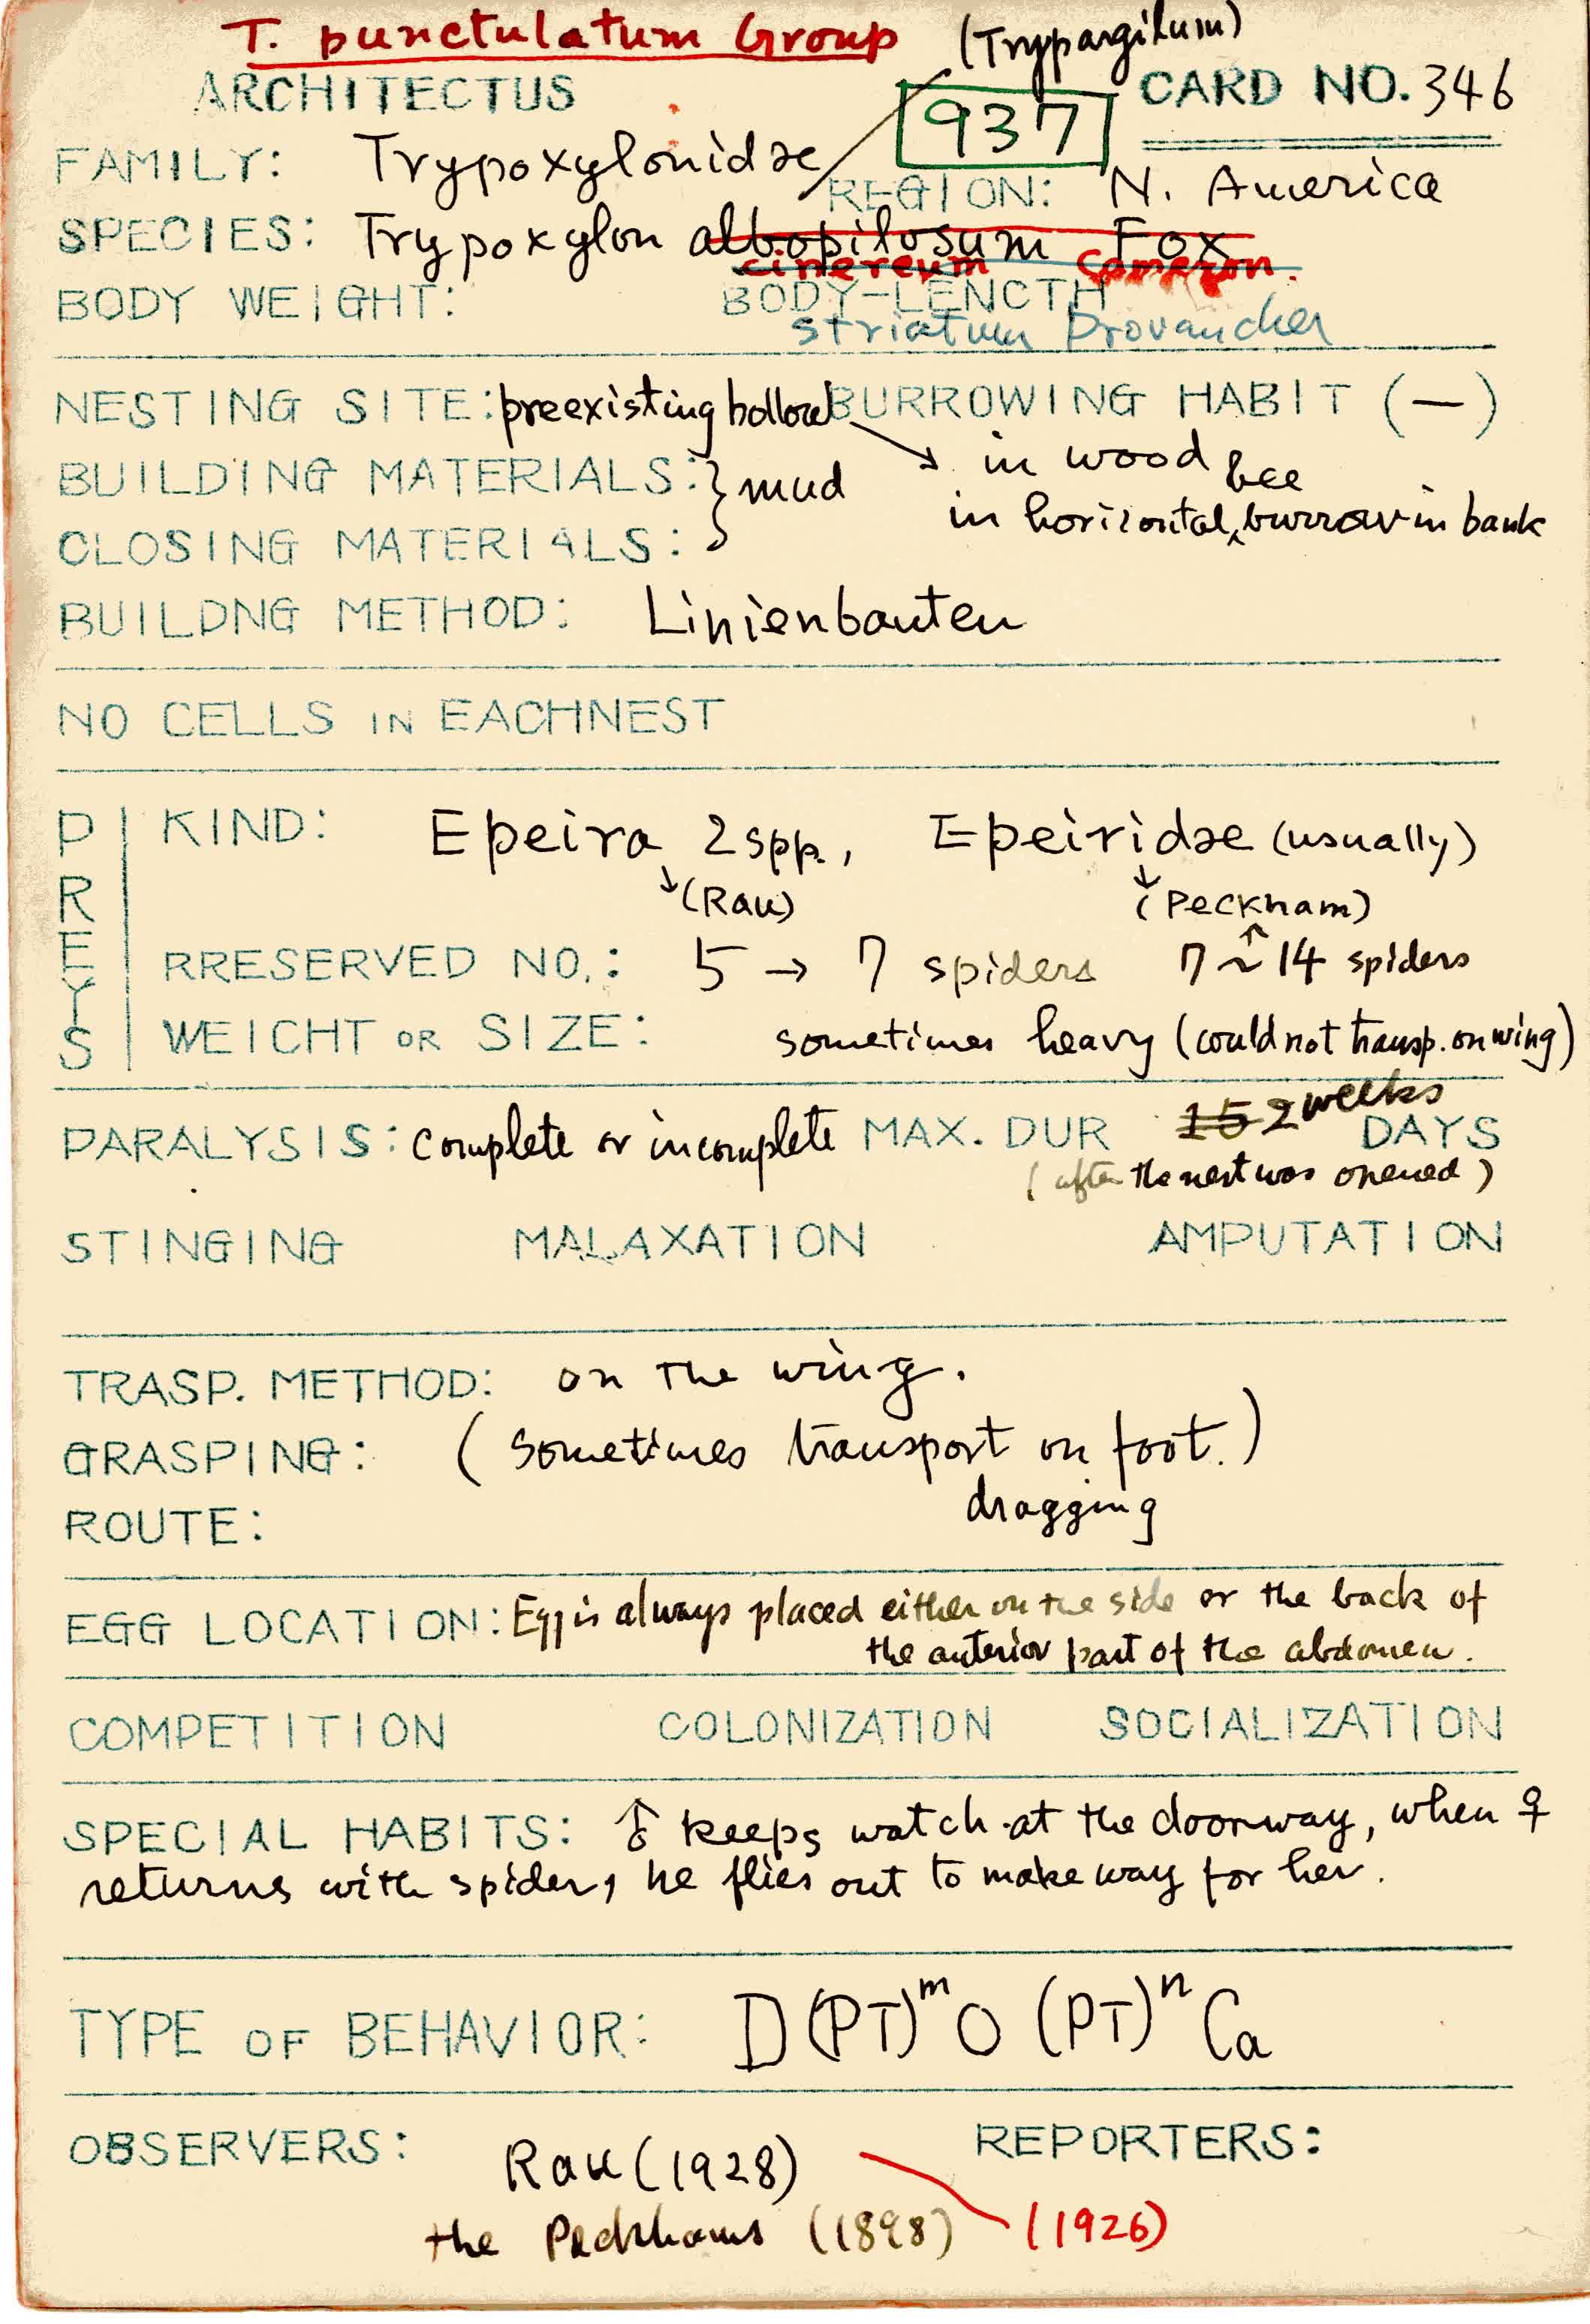 T. punctulatum Group (Trypargilum)
ARCHITECTUS 937 CARD NO. 346
FAMILY: Trypoxylonidae REGION: N. America
SPECIES: Trypoxylon albopilosum Fox
cinereum Cameron.
BODY WEIGHT: BODY-LENCTH
striatum Provancher
NESTING SITE: preexisting hollow BURROWING HABIT (—)
→ in wood
BUILDING MATERIALS: } mud
in horizontal bee burrow in bank
CLOSING MATERIALS:
BUILDNG METHOD: Linienbauten
NO CELLS IN EACHNEST
PREYS
KIND: Epeira 2spp., Epeiridae (usually)
↓(Rau) ↓(Peckham)
RRESERVED NO.: 5 → 7 spiders 7~14 spiders
WEICHT OR SIZE: sometimes heavy (could not transp. on wing)
PARALYSIS: complete or incomplete MAX. DUR 15 2 weeks DAYS
(after the nest was opened)
STINGING MALAXATION AMPUTATION
TRASP. METHOD: on the wing.
GRASPING: (sometimes transport on foot.)
dragging
ROUTE:
EGG LOCATION: Egg is always placed either on the side or the back of
the anterior part of the abdomen.
COMPETITION COLONIZATION SOCIALIZATION
SPECIAL HABITS: ♂ keeps watch at the doorway, when ♀
returns with spider, he flies out to make way for her.
TYPE OF BEHAVIOR: D(PT)ᵐO(PT)ⁿCa
OBSERVERS: Rau (1928) REPORTERS:
the Peckhams (1898) (1926)